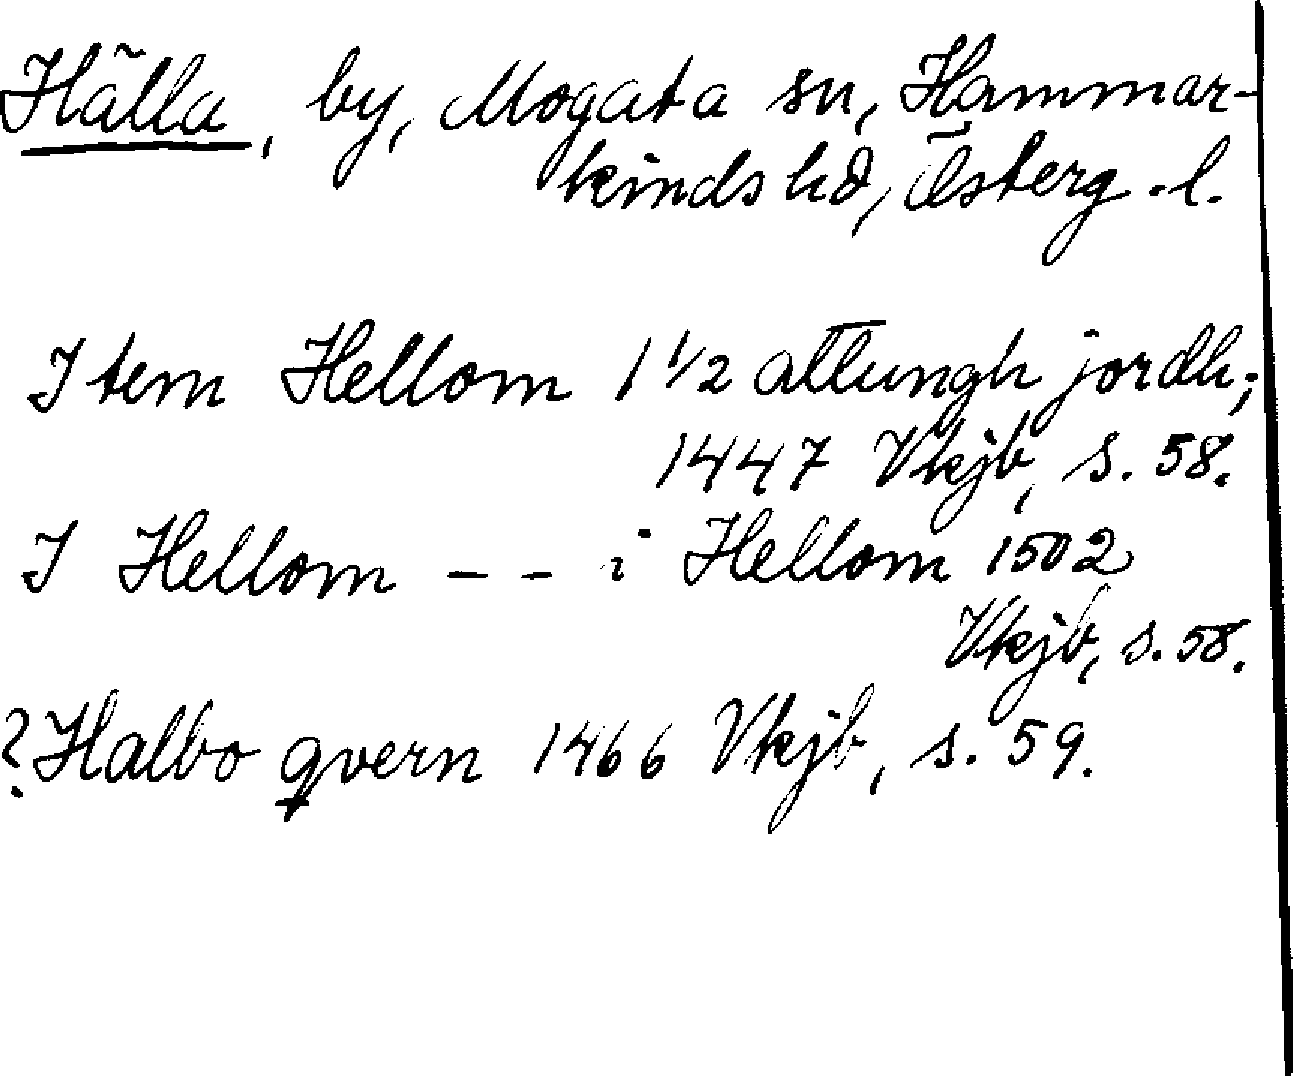 Hälla, by, Mogata sn, Hammar-
kinds hd, Österg. l.
Item Hellom 1 1/2 attungh jordh;
1447 Vkjb, s. 58.
I Hellom - - i Hellom 1502
Vkjb, s. 58.
? Halbo qvern 1466 Vkjb, s. 59.